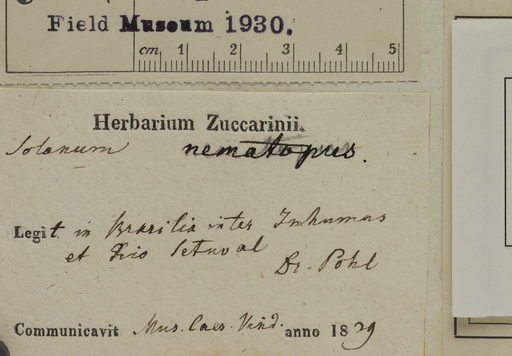 Field Museum 1930.
cm 1 2 3 4 5
Herbarium Zuccarinii.
Solanum nematopus.
Legit in Brasilia inter Inhumas
et Rio Setuval
Dr. Pohl
Communicavit Mus. Caes. Vind. anno 1839